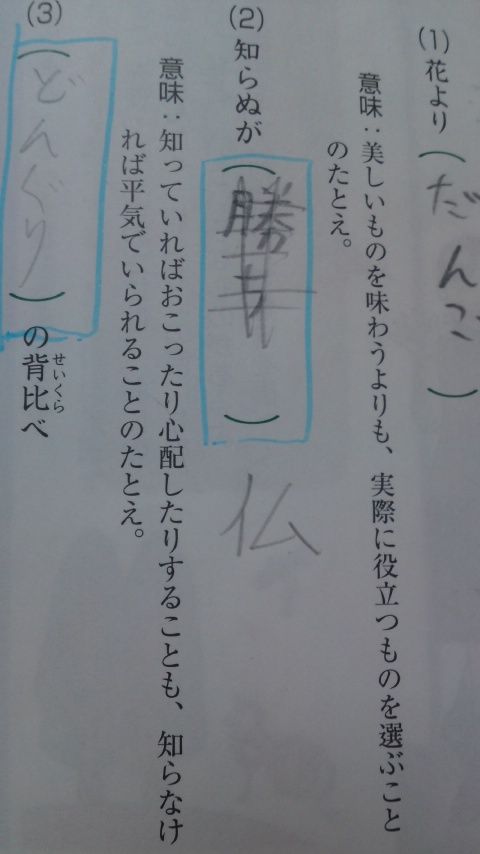 (1) 花より(だんご)
意味：美しいものを味わうよりも、実際に役立つものを選ぶこと
のたとえ。
(2) 知らぬが(勝り) 仏
意味：知っていればおこったり心配したりすることも、知らなけ
れば平気でいられることのたとえ。
(3) (どんぐり)の背比べ
せいくら